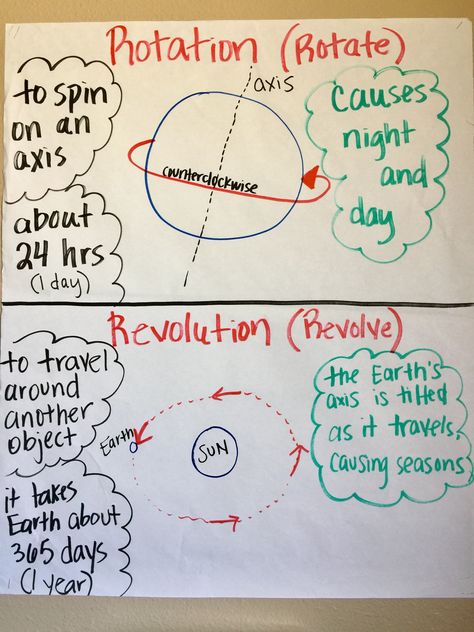 Rotation (Rotate)
to spin
on an
axis
about
24 hrs
(1 day)
axis
counterclockwise
causes
night
and
day
Revolution (Revolve)
to travel
around
another
object
it takes
Earth about
365 days
(1 year)
Earth
SUN
the Earth's
axis is tilted
as it travels,
causing seasons